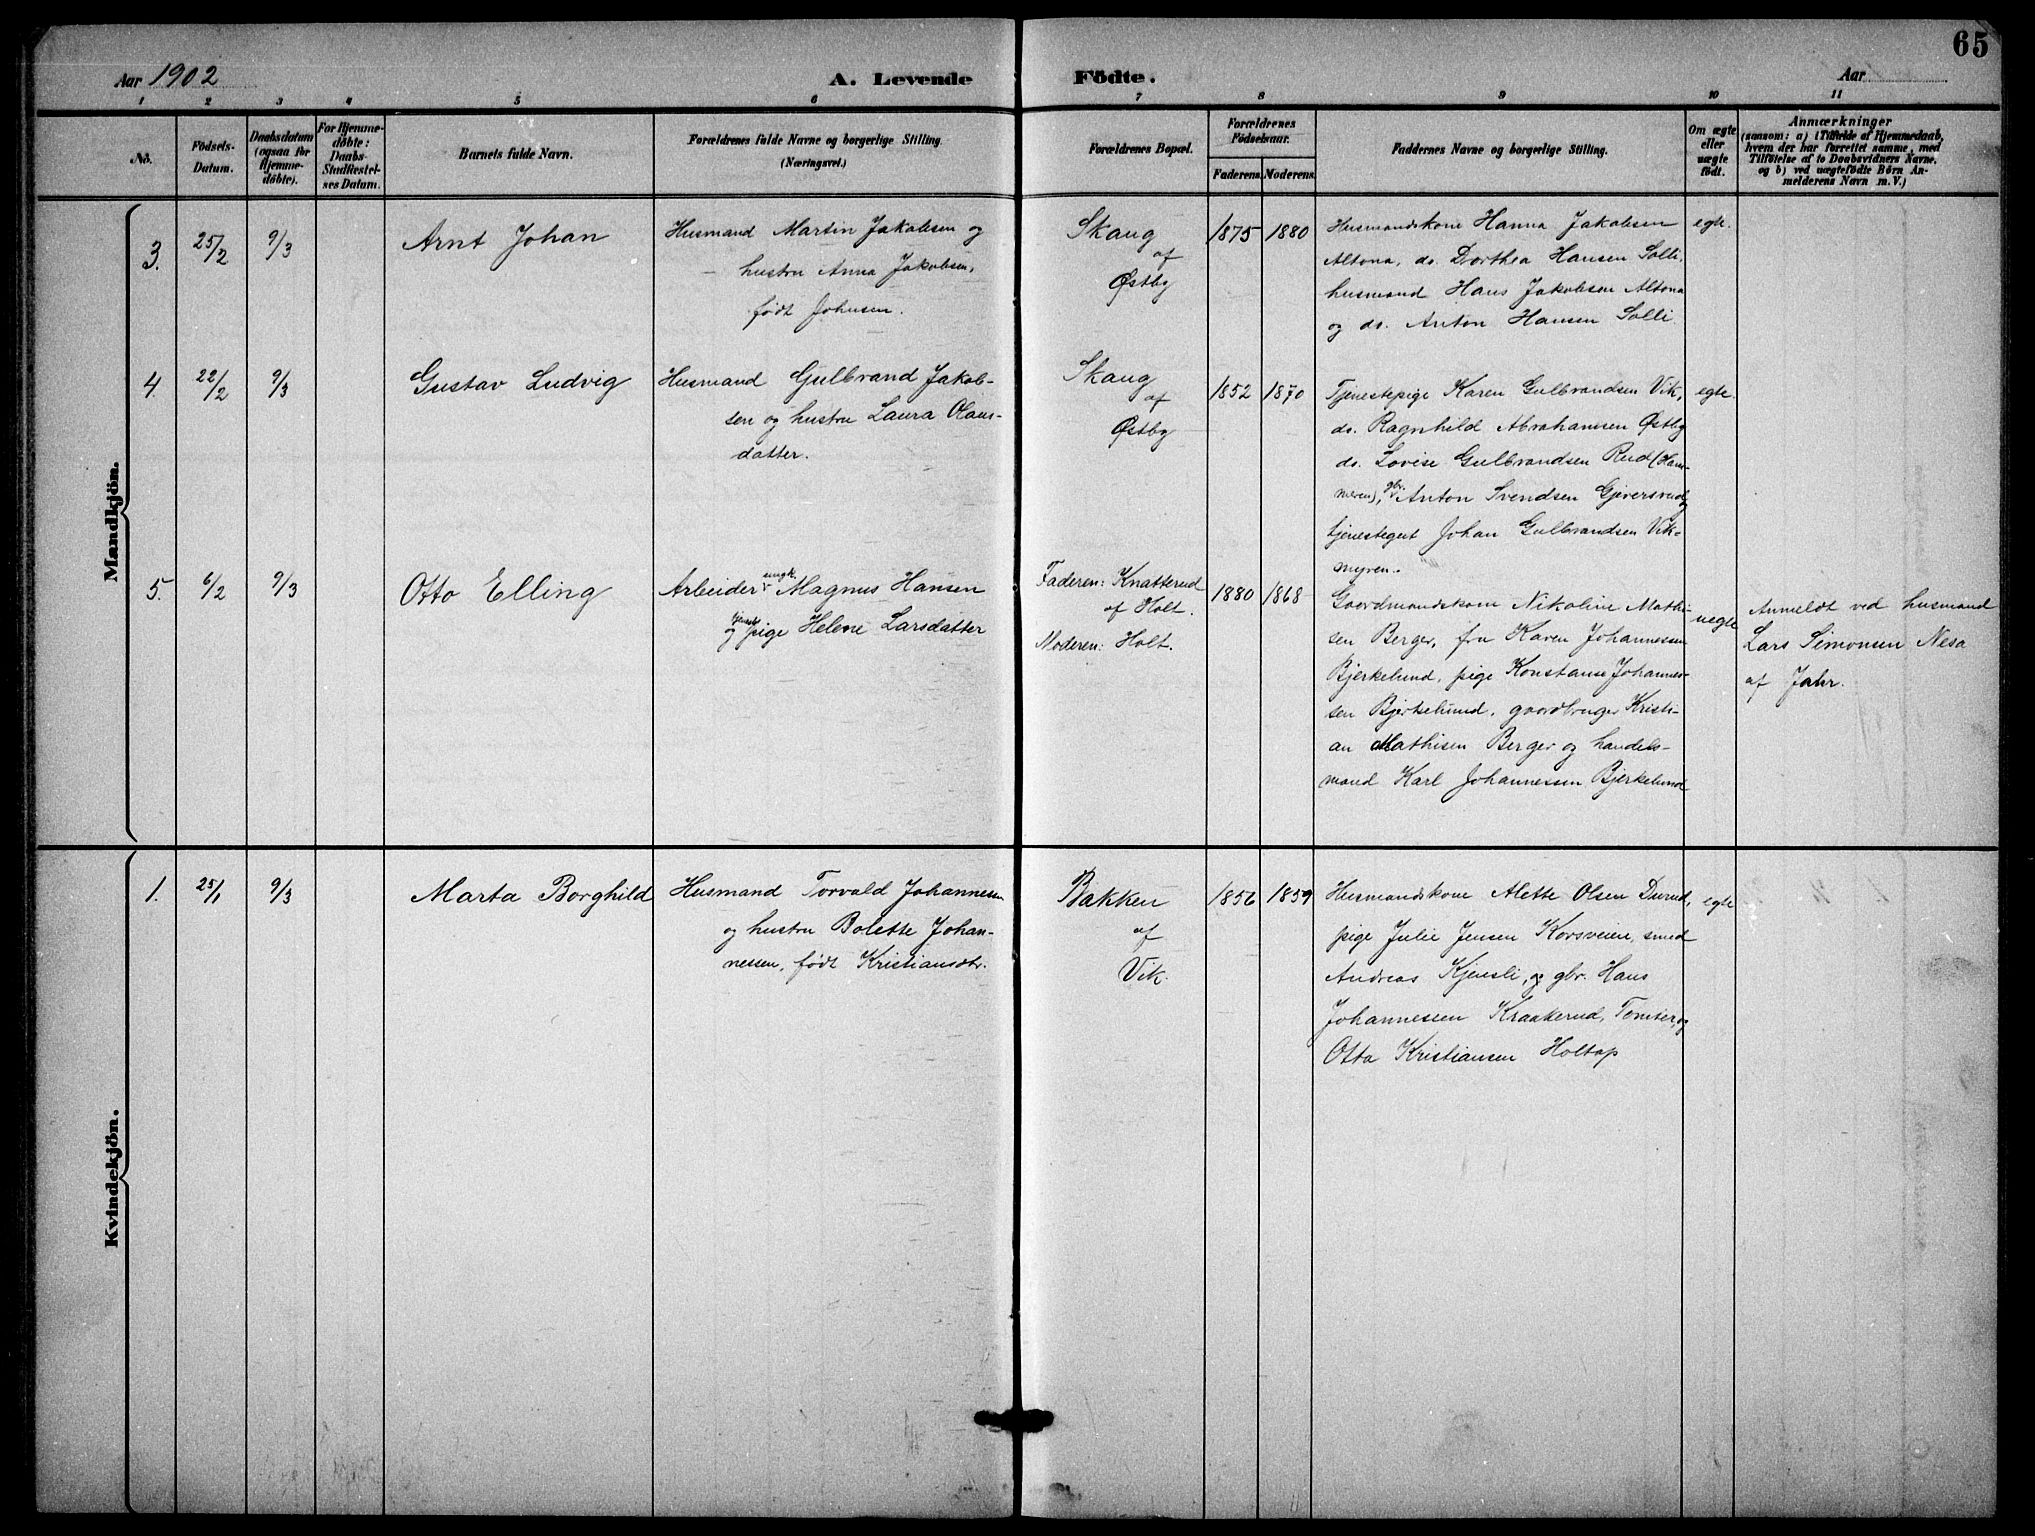 65
Aar 1902
A. Levende
Födte.
Aar
1 2 3 4 5 6 7 8 9 10 11
No.
Födsels-
Datum.
Daabsdatum
(ogsaa for
Hjemme-
döbte).
For Hjemme-
döbte:
Daabs-
Stadfæstel-
ses Datum.
Barnets fulde Navn.
Forældrenes fulde Navne og borgerlige Stilling
(Næringsvei.)
Forældrenes Bopæl.
Forældrenes
Födselsaar.
Faderens. Moderens.
Faddernes Navne og borgerlige Stilling.
Om ægte
eller
uægte
födt.
Anmærkninger
(saasom: a) i Tilfælde af Hjemmedaab,
hvem der har forrettet samme, med
Tilföielse af to Daabsvidners Navne,
og b) ved uægtefödte Börn An-
melderens Navn m. V.)
Mandkjön.
3. 25/2 9/3
Arnt Johan
Husmand Martin Jakobsen og
hustru Anna Jakobsen,
født Johnsen.
Skaug
af
Østby
1875 1880
Husmandskone Hanna Jakobsen
Altona, do. Dorthea Hansen Solli,
husmand Hans Jakobsen Altona
og do. Anton Hansen Solli.
egte.
4. 22/2 9/3
Gustav Ludvig
Husmand Gulbrand Jakob-
sen og hustru Laura Olaus-
datter.
Skaug
af
Østby
1852 1870
Tjenestepige Karen Gulbrandsen Vik,
do. Ragnhild Abrahamsen Østby
do. Lovise Gulbrandsen Rud (Ham-
meren), gbr. Anton Svendsen Gjersrud og
tjenestegut Johan Gulbrandsen Vik-
myren.
egte.
5. 6/2 9/3
Otto Elling
Arbeider ungk. Magnus Hansen
og tjeneste pige Helene Larsdatter
Faderen: Knatterud
af Holt.
Moderen: Holt.
1880 1868
Gaardmandskone Nikoline Mathi-
sen Berger, fru Karen Johannessen
Bjerkelund, pige Konstanse Johannes-
sen Bjerkelund, gaardbruger Kristi-
an Mathisen Berger og handels-
mand Karl Johannessen Bjerkelund
uegte
Anmeldt ved husmand
Lars Simonsen Nesa
af Jahr.
Kvindekjön.
1. 25/1 9/3
Marta Borghild
Husmand Torvald Johannessen
og hustru Bolette Johan-
nessen, født Kristiansdtr.
Bakken
af
Vik.
1856 1859
Husmandskone Alette Olsen Durud,
pige Julie Jensen Korsveien, smed
Andreas Kjensli, og gbr. Hans
Johannessen Kraakerud, Tomter, og
Otto Kristiansen Holtop
egte